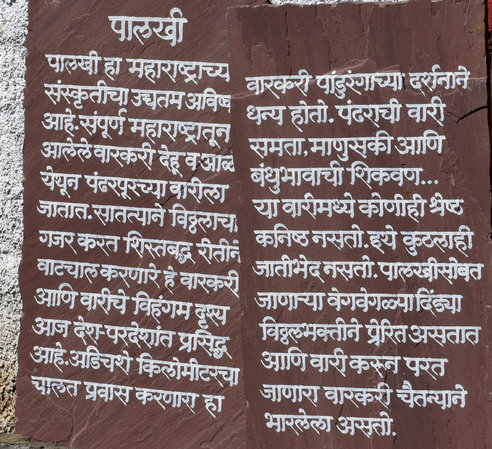 पालखी
पालखी हा महाराष्ट्राच्य
संस्कृतीचा उच्चतम अविष
आहे. संपूर्ण महाराष्ट्रातून
आलेले वारकरी देहू व आळ
येथून पंढरपूरच्या वारीला
जातात. सातत्याने विठ्ठलाचा
गजर करत शिस्तबद्ध रीतीने
वाटचाल करणारे हे वारकरी
आणि वारीचे विहंगम दृश्य
आज देश-परदेशांत प्रसिद्ध
आहे. अडिचशे किलोमीटरचा
चालत प्रवास करणारा हा
वारकरी पांडुरंगाच्या दर्शनाने
धन्य होतो. पंढराची वारी
समता, माणुसकी आणि
बंधुभावाची शिकवण...
या वारीमध्ये कोणीही श्रेष्ठ
कनिष्ठ नसतो. इथे कुठलाही
जातीभेद नसतो. पालखीसोबत
जाणाऱ्या वेगवेगळ्या दिंड्या
विठ्ठलभक्तीने प्रेरित असतात
आणि वारी करून परत
जाणारा वारकरी चैतन्याने
भारलेला असतो.